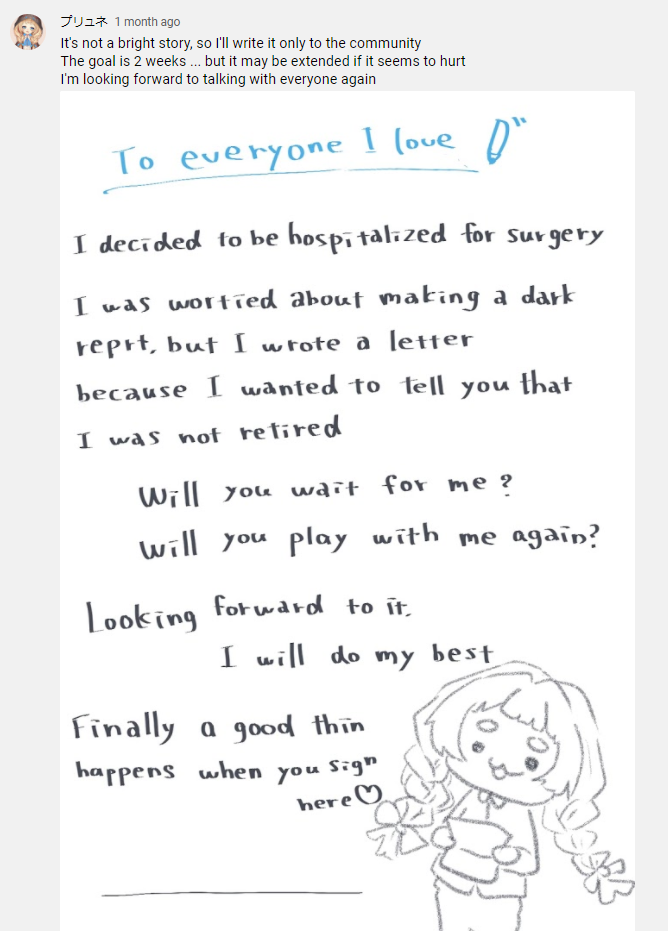 プリュネ 1 month ago
It's not a bright story, so I'll write it only to the community
The goal is 2 weeks ... but it may be extended if it seems to hurt
I'm looking forward to talking with everyone again
To everyone I love
I decided to be hospitalized for surgery
I was wortied about making a dark
reprt, but I wrote a letter
because I wanted to tell you that
I was not retired
Will you wait for me?
Will you play with me again?
Looking forward to it.
I will do my best
Finally a good thin
happens when you sign
here♡